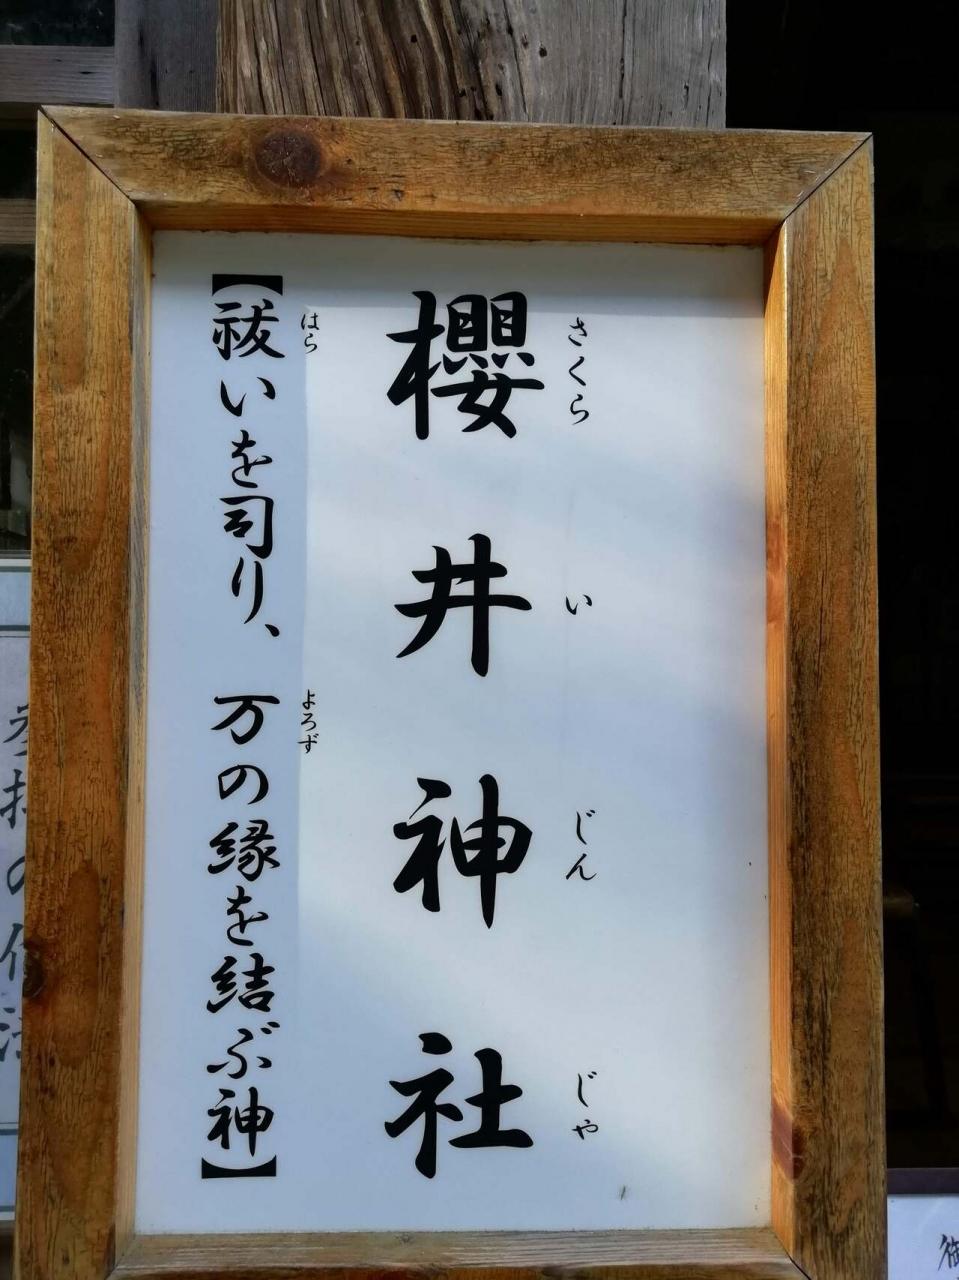 さくらいじんじゃ
櫻井神社
はら よろず
【祓いを司り、万の縁を結ぶ神】
御